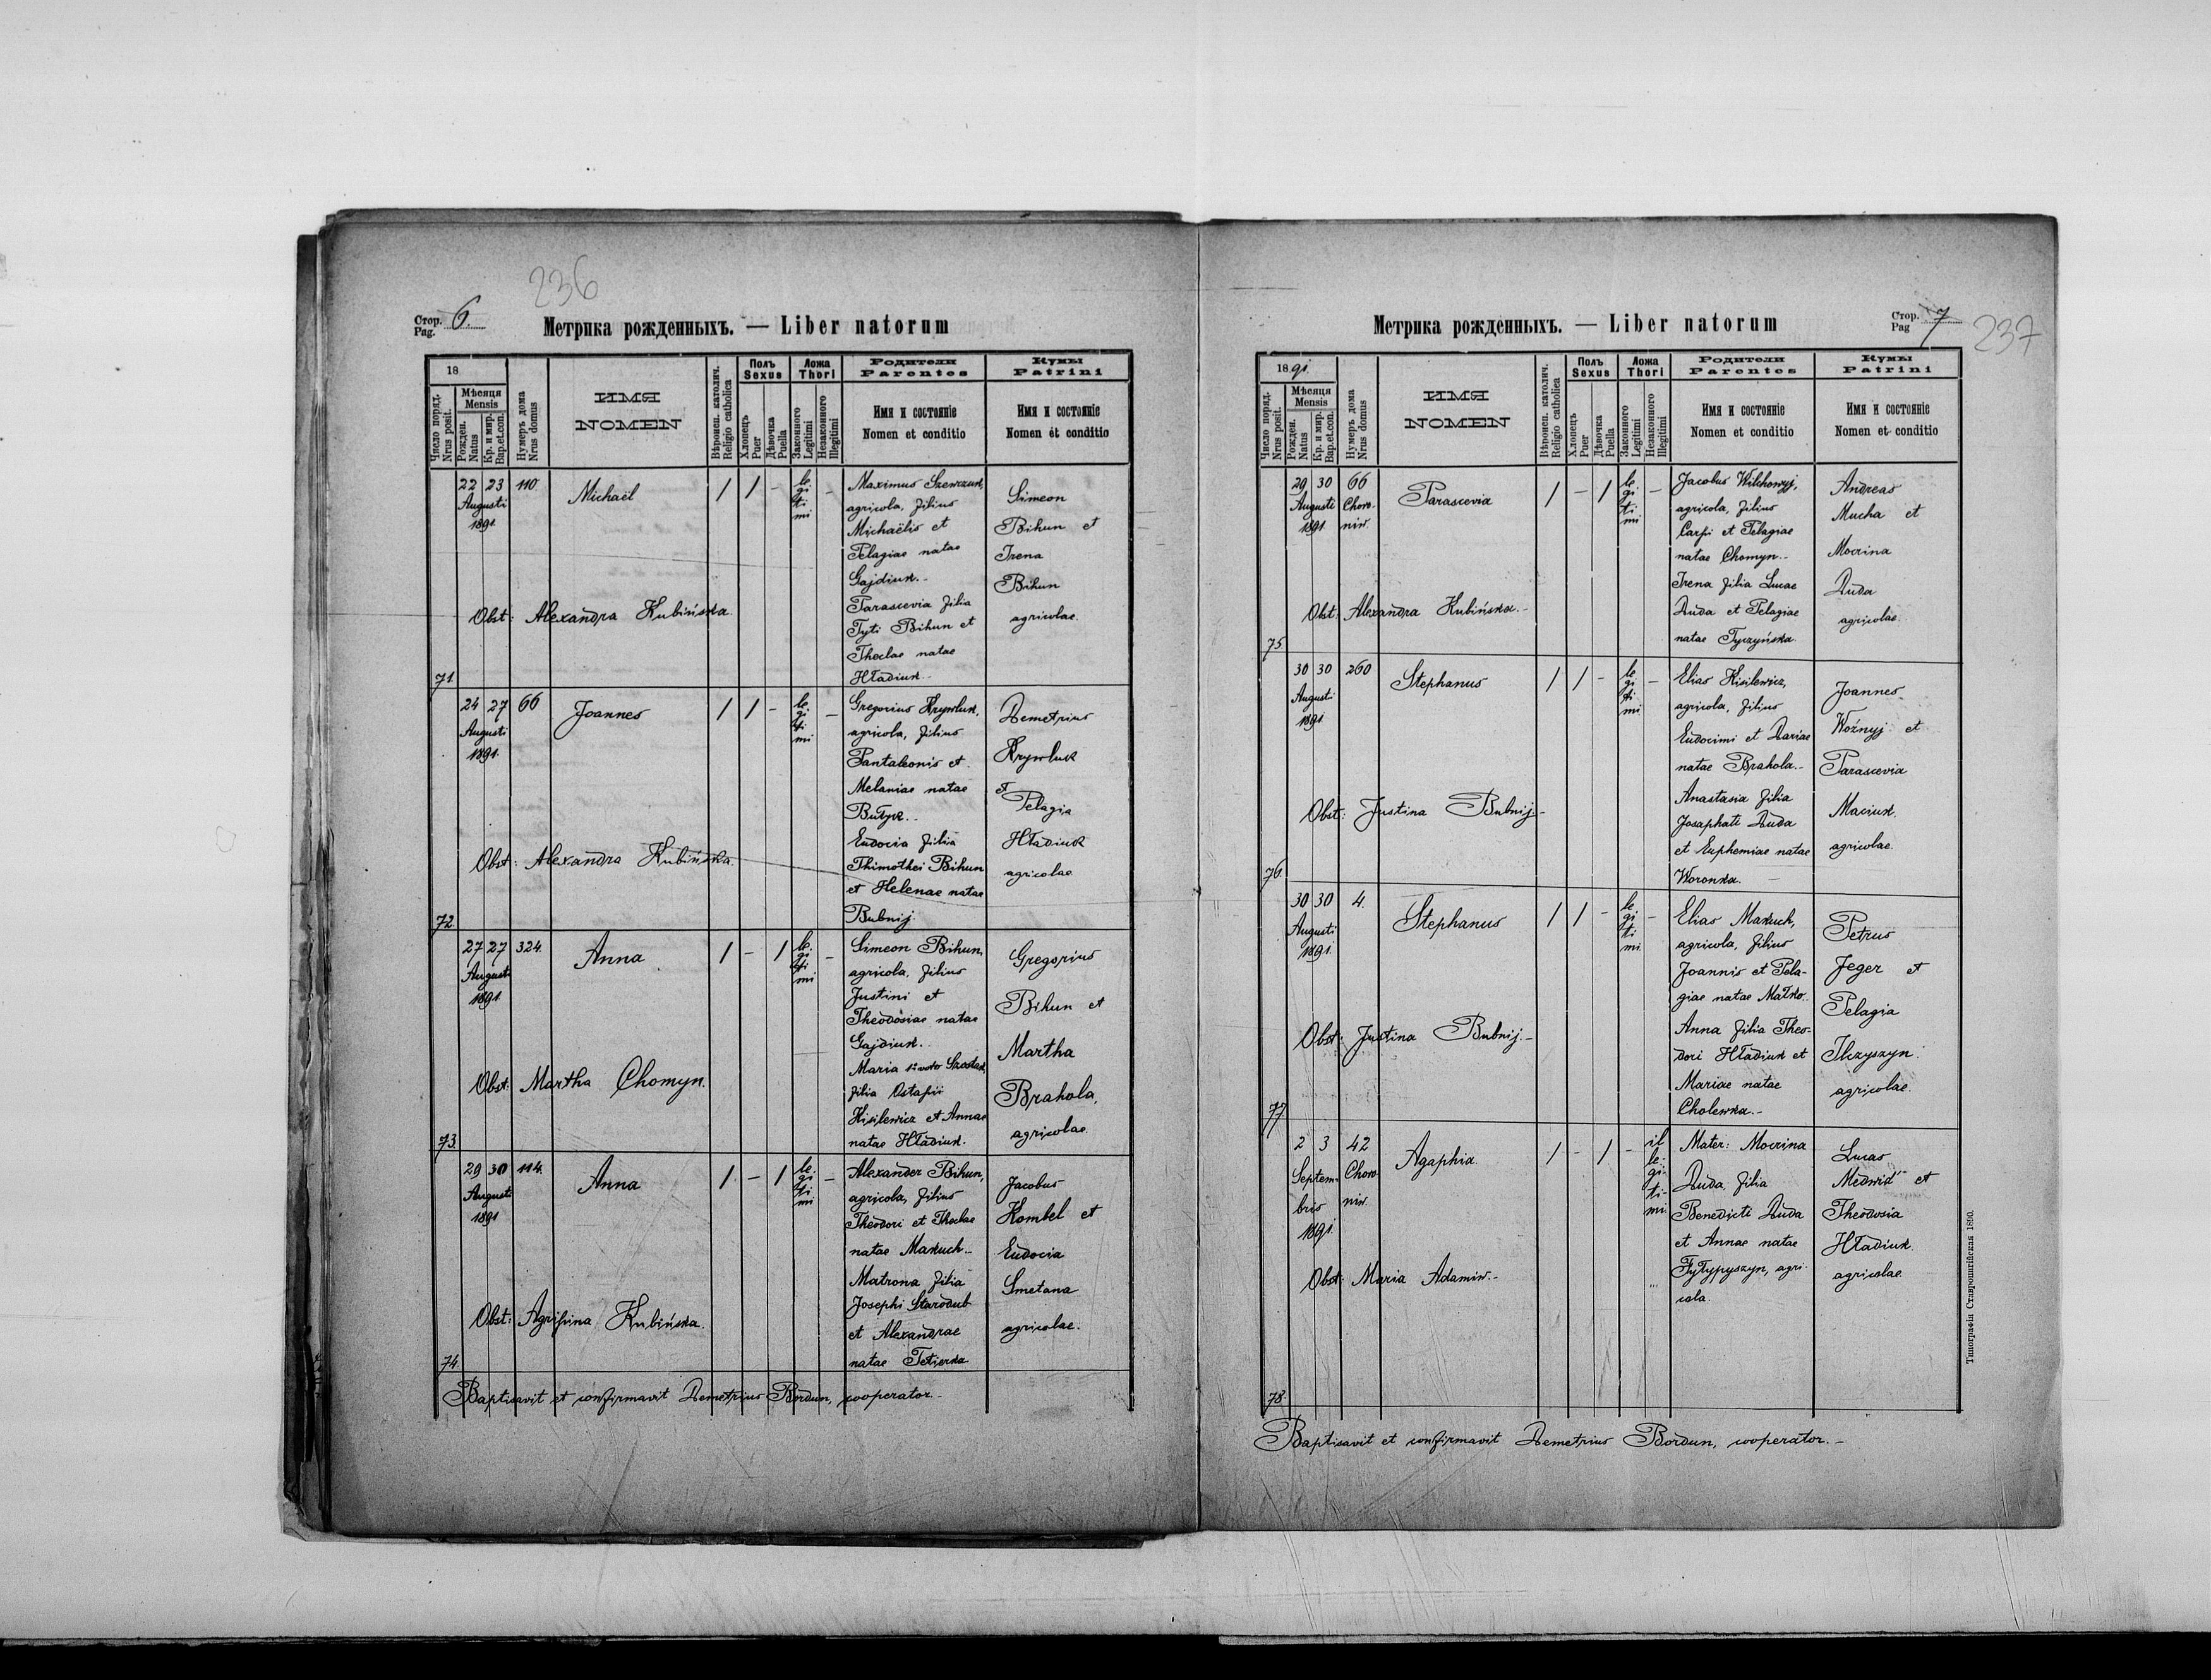 236
Стор. Pag. 6.
Метрика рожденныхъ. — Liber natorum
18
Число поряд. Nrus posit.
Мѣсяця Mensis
Рожден. Natus
Кр. и мир. Bap.et.con.
Нумеръ дома Nrus domus
ИМЯ
NOMEN
Вѣроисп. католич. Religio catholica
Полъ Sexus
Хлопецъ Puer
Дѣвочка Puella
Ложа Thori
Законного Legitimi
Незаконного Illegitimi
Родители Parentes
Имя и состоянiе
Nomen et conditio
Кумы Patrini
Имя и состоянiе
Nomen et conditio
71.
22 23 110
Augusti
1891.
Michaël
/ / - le gi ti mi -
Maximus Szewczuk,
agricola, filius
Michaëlis et
Pelagiae natae
Gajdiuk.-
Parascevia filia
Tyti Bihun et
Theclae natae
Hładiuk.-
Simeon
Bihun et
Irena
Bihun
agricolae.
Obst: Alexandra Kubińska.
72.
24 27 66
Augusti
1891.
Joannes
/ / - le gi ti mi -
Gregorius Krywluk,
agricola, filius
Pantaleonis et
Melaniae natae
Butyk.-
Eudocia filia
Thimothei Bihun
et Helenae natae
Bubnij
Demetrius
Krywluk
et
Pelagia
Hładiuk
agricolae
Obst: Alexandra Kubińska.
73.
27 27 324.
Augusti
1891.
Anna
/ - / le gi ti mi -
Simeon Bihun,
agricola, filius
Justini et
Theodosiae natae
Gajdiuk.
Maria 1º voto Szostak
filia Ostapii
Kisilewicz et Annae
natae Hładiuk.
Gregorius
Bihun et
Martha
Brahola,
agricolae.
Obst: Martha Chomyn.
74.
29 30 114.
Augusti
1891
Anna
/ - / le gi ti mi -
Alexander Bihun,
agricola, filius
Theodori et Theclae
natae Makuch.-
Matrona filia
Josephi Starodub
et Alexandrae
natae Tetierka
Jacobus
Kombel et
Eudocia
Smetana
agricolae.
Obst: Agrifina Kubińska.
Baptisavit et confirmavit Demetrius Bordun, cooperator.-
Стор. Pag 7
237
Метрика рожденныхъ. — Liber natorum
1891.
Число поряд. Nrus posit.
Мѣсяця Mensis
Рожден. Natus
Кр. и мир. Bap.et.con.
Нумеръ дома Nrus domus
ИМЯ
NOMEN
Вѣроисп. католич. Religio catholica
Полъ Sexus
Хлопецъ Puer
Дѣвочка Puella
Ложа Thori
Законного Legitimi
Незаконного Illegitimi
Родители Parentes
Имя и состоянiе
Nomen et conditio
Кумы Patrini
Имя и состоянiе
Nomen et conditio
75.
29 30 66
Augusti Choro-
1891. niw.
Parascevia
/ - / le gi ti mi -
Jacobus Wilchowyj,
agricola, filius
Carpi et Pelagiae
natae Chomyn.-
Irena filia Lucae
Duda et Pelagiae
natae Tyczyńska.
Andreas
Mucha et
Mocrina
Duda
agricolae.
Obst: Alexandra Kubińska.-
76.
30 30 260
Augusti
1891
Stephanus
/ / - le gi ti mi -
Elias Kisilewicz,
agricola, filius
Eudocimi et Dariae
natae Brahola.-
Anastasia filia
Josaphati Duda
et Euphemiae natae
Woronka.
Joannes
Woźnyj et
Parascevia
Maciuk.
agricolae.
Obst: Justina Bubnij.-
77.
30 30 4.
Augusti
1891.
Stephanus
/ / - le gi ti mi -
Elias Makuch,
agricola, filius
Joannis et Pela-
giae natae Matko.
Anna filia Theo-
dori Hładiuk et
Mariae natae
Cholewka.-
Petrus
Jeger et
Pelagia
Ilczyszyn.
agricolae.
Obst: Justina Bubnij.-
78.
2 3 42
Septem- Choro-
bris niw.
1891.
Agaphia.
/ - / - il le- gi- ti- mi
Mater: Mocrina
Duda, filia
Benedicti Duda
et Annae natae
Tytypyszyn, agri-
cola.
Lucas
Medwid' et
Theodosia
Hładiuk.
agricolae.
Obst: Maria Adamiw.-
Baptisavit et confirmavit Demetrius Bordun, cooperator.-
Типографія Ставропигійская 1890.